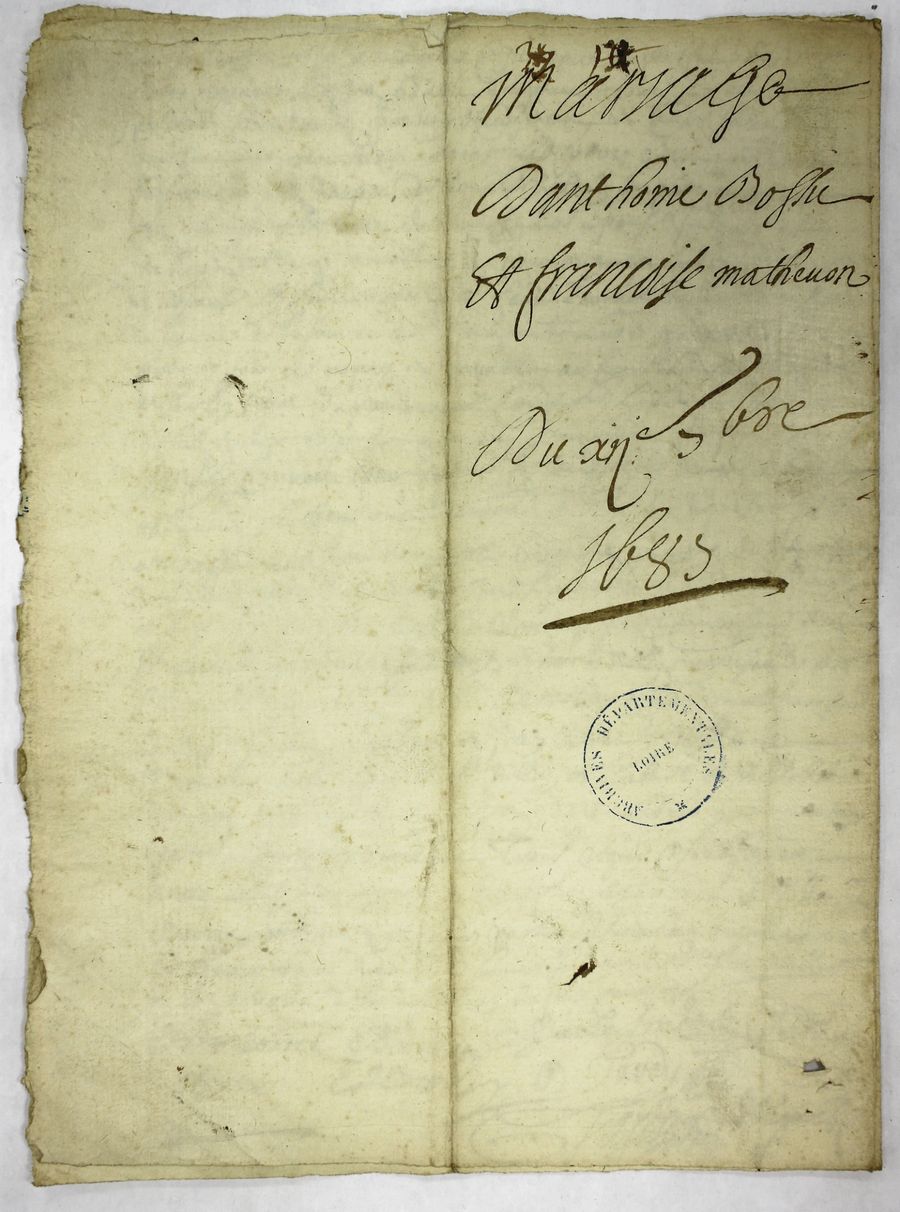 mariage
Danthoine Bossu
Et francoise matheuon
Du xij.e
1683
ARCHIVES DÉPARTEMENTALES
LOIRE